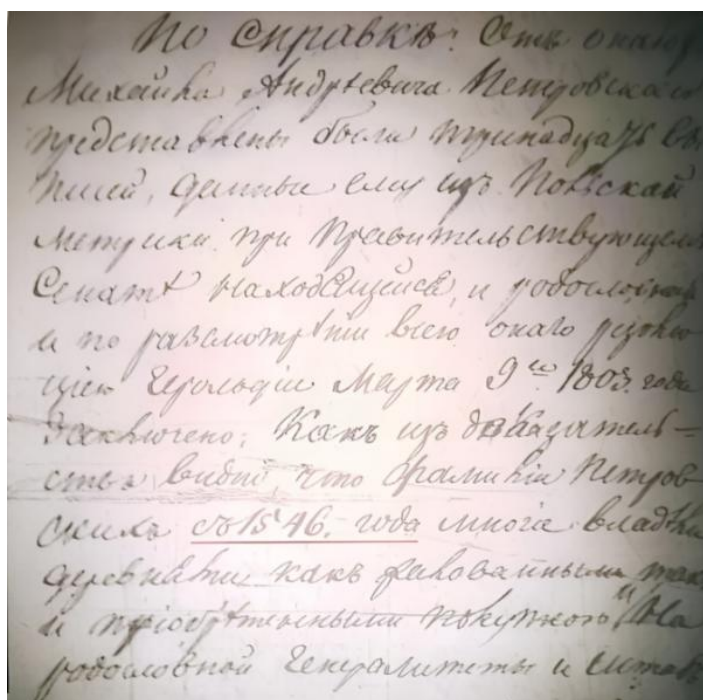 По справкѣ: Отъ онаго
Михайла Андрѣевича Петровскаго
представлены были тринадцать вы
писей, данные ему изъ Польской
метрики при Правительствующемъ
Сенатѣ находящейся, и родословная
и по разсмотрѣнiи всего онаго резолю
цiею Герольдiи Марта 9го 1803. года
заключено; Какъ изъ доказатель=
ствъ видно, что фамилiи Петров
скихъ съ 1546. года многiе владѣли
деревнями какъ жалованными такъ
и прiобрѣтенными покупкою, и На
родословной Генералитеты и